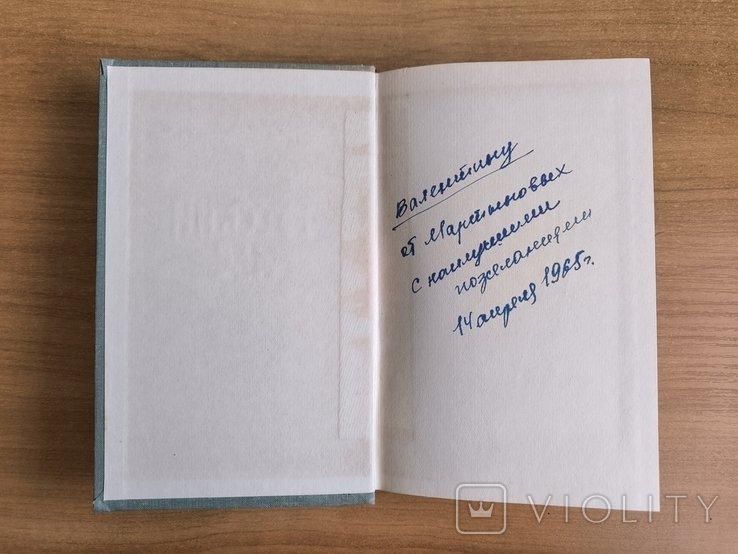 Валентину
от Мартыновых
с наилучшими
пожеланиями
14 апреля 1965г.
VIOLITY